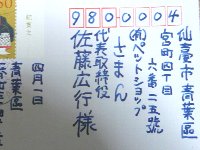 980-0004
仙臺市青葉區
宮町四丁目
六番二五號
(有)ペットショップ
さまん
代表取締役
佐藤広行様
四月一日
青葉區